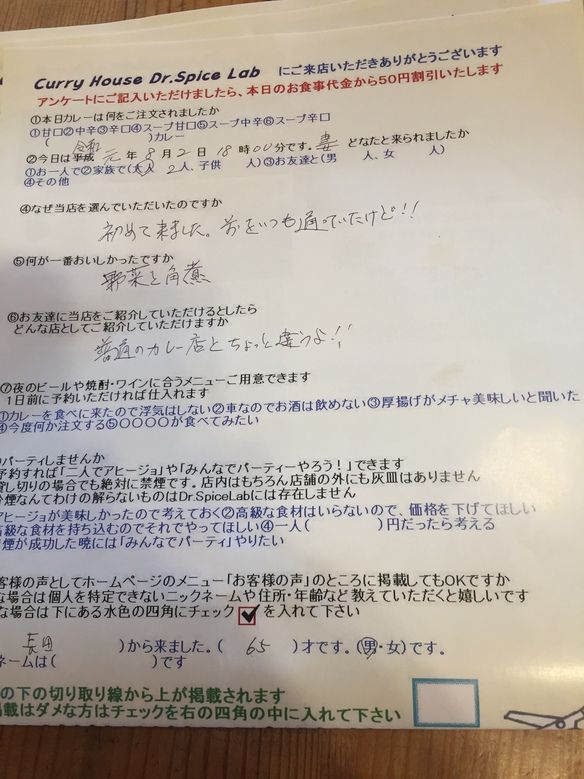 Curry House Dr.Spice Lab にご来店いただきありがとうございます
アンケートにご記入いただけましたら、本日のお食事代金から50円割引いたします
①本日カレーは何をご注文されましたか
①甘口②中辛③辛口④スープ甘口⑤スープ中辛⑥スープ辛口
( )カレー
令和
②今日は平成 元 年 8 月 2 日 18 時 00 分です。 妻 どなたと来られましたか
①お一人で②家族で(大人 2 人、子供 人)③お友達と(男 人、女 人)
④その他
④なぜ当店を選んでいただいたのですか
初めて来ました。前をいつも通っていたけど!!
⑤何が一番おいしかったですか
野菜と角煮
⑥お友達に当店をご紹介していただけるとしたら
どんな店としてご紹介していただけますか
普通のカレー店とちょっと違うよ!!
⑦夜のビールや焼酎・ワインに合うメニューご用意できます
1日前に予約いただければ仕入れます
①カレーを食べに来たので浮気はしない②車なのでお酒は飲めない③厚揚げがメチャ美味しいと聞いた
④今度何か注文する⑤○○○○が食べてみたい
パーティしませんか
予約すれば「二人でアヒージョ」や「みんなでパーティーやろう!」できます
貸し切りの場合でも絶対に禁煙です。店内はもちろん店舗の外にも灰皿はありません
煙なんてわけの解らないものはDr.SpiceLabには存在しません
アヒージョが美味しかったので考えておく②高級な食材はいらないので、価格を下げてほしい
高級な食材を持ち込むのでそれでやってほしい④一人( )円だったら考える
煙が成功した暁には「みんなでパーティ」やりたい
客様の声としてホームページのメニュー「お客様の声」のところに掲載してもOKですか
な場合は個人を特定できないニックネームや住所・年齢など教えていただくと嬉しいです
な場合は下にある水色の四角にチェック を入れて下さい
)から来ました。( 65 )才です。(男・女)です。
ネームは( )です
の下の切り取り線から上が掲載されます
掲載はダメな方はチェックを右の四角の中に入れて下さい